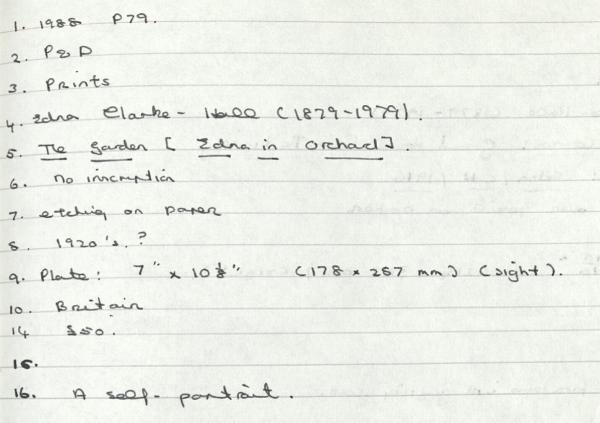 1. 1988 P79.
2. P&D
3. Prints
4. Edna Clarke-Hall (1879-1979).
5. The Garden [Edna in Orchard].
6. no inscription
7. etching on paper
8. 1920's.?
9. Plate: 7" x 10⅛" (178 x 257 mm) (sight).
10. Britain
14 £50.
15.
16. A self-portrait.